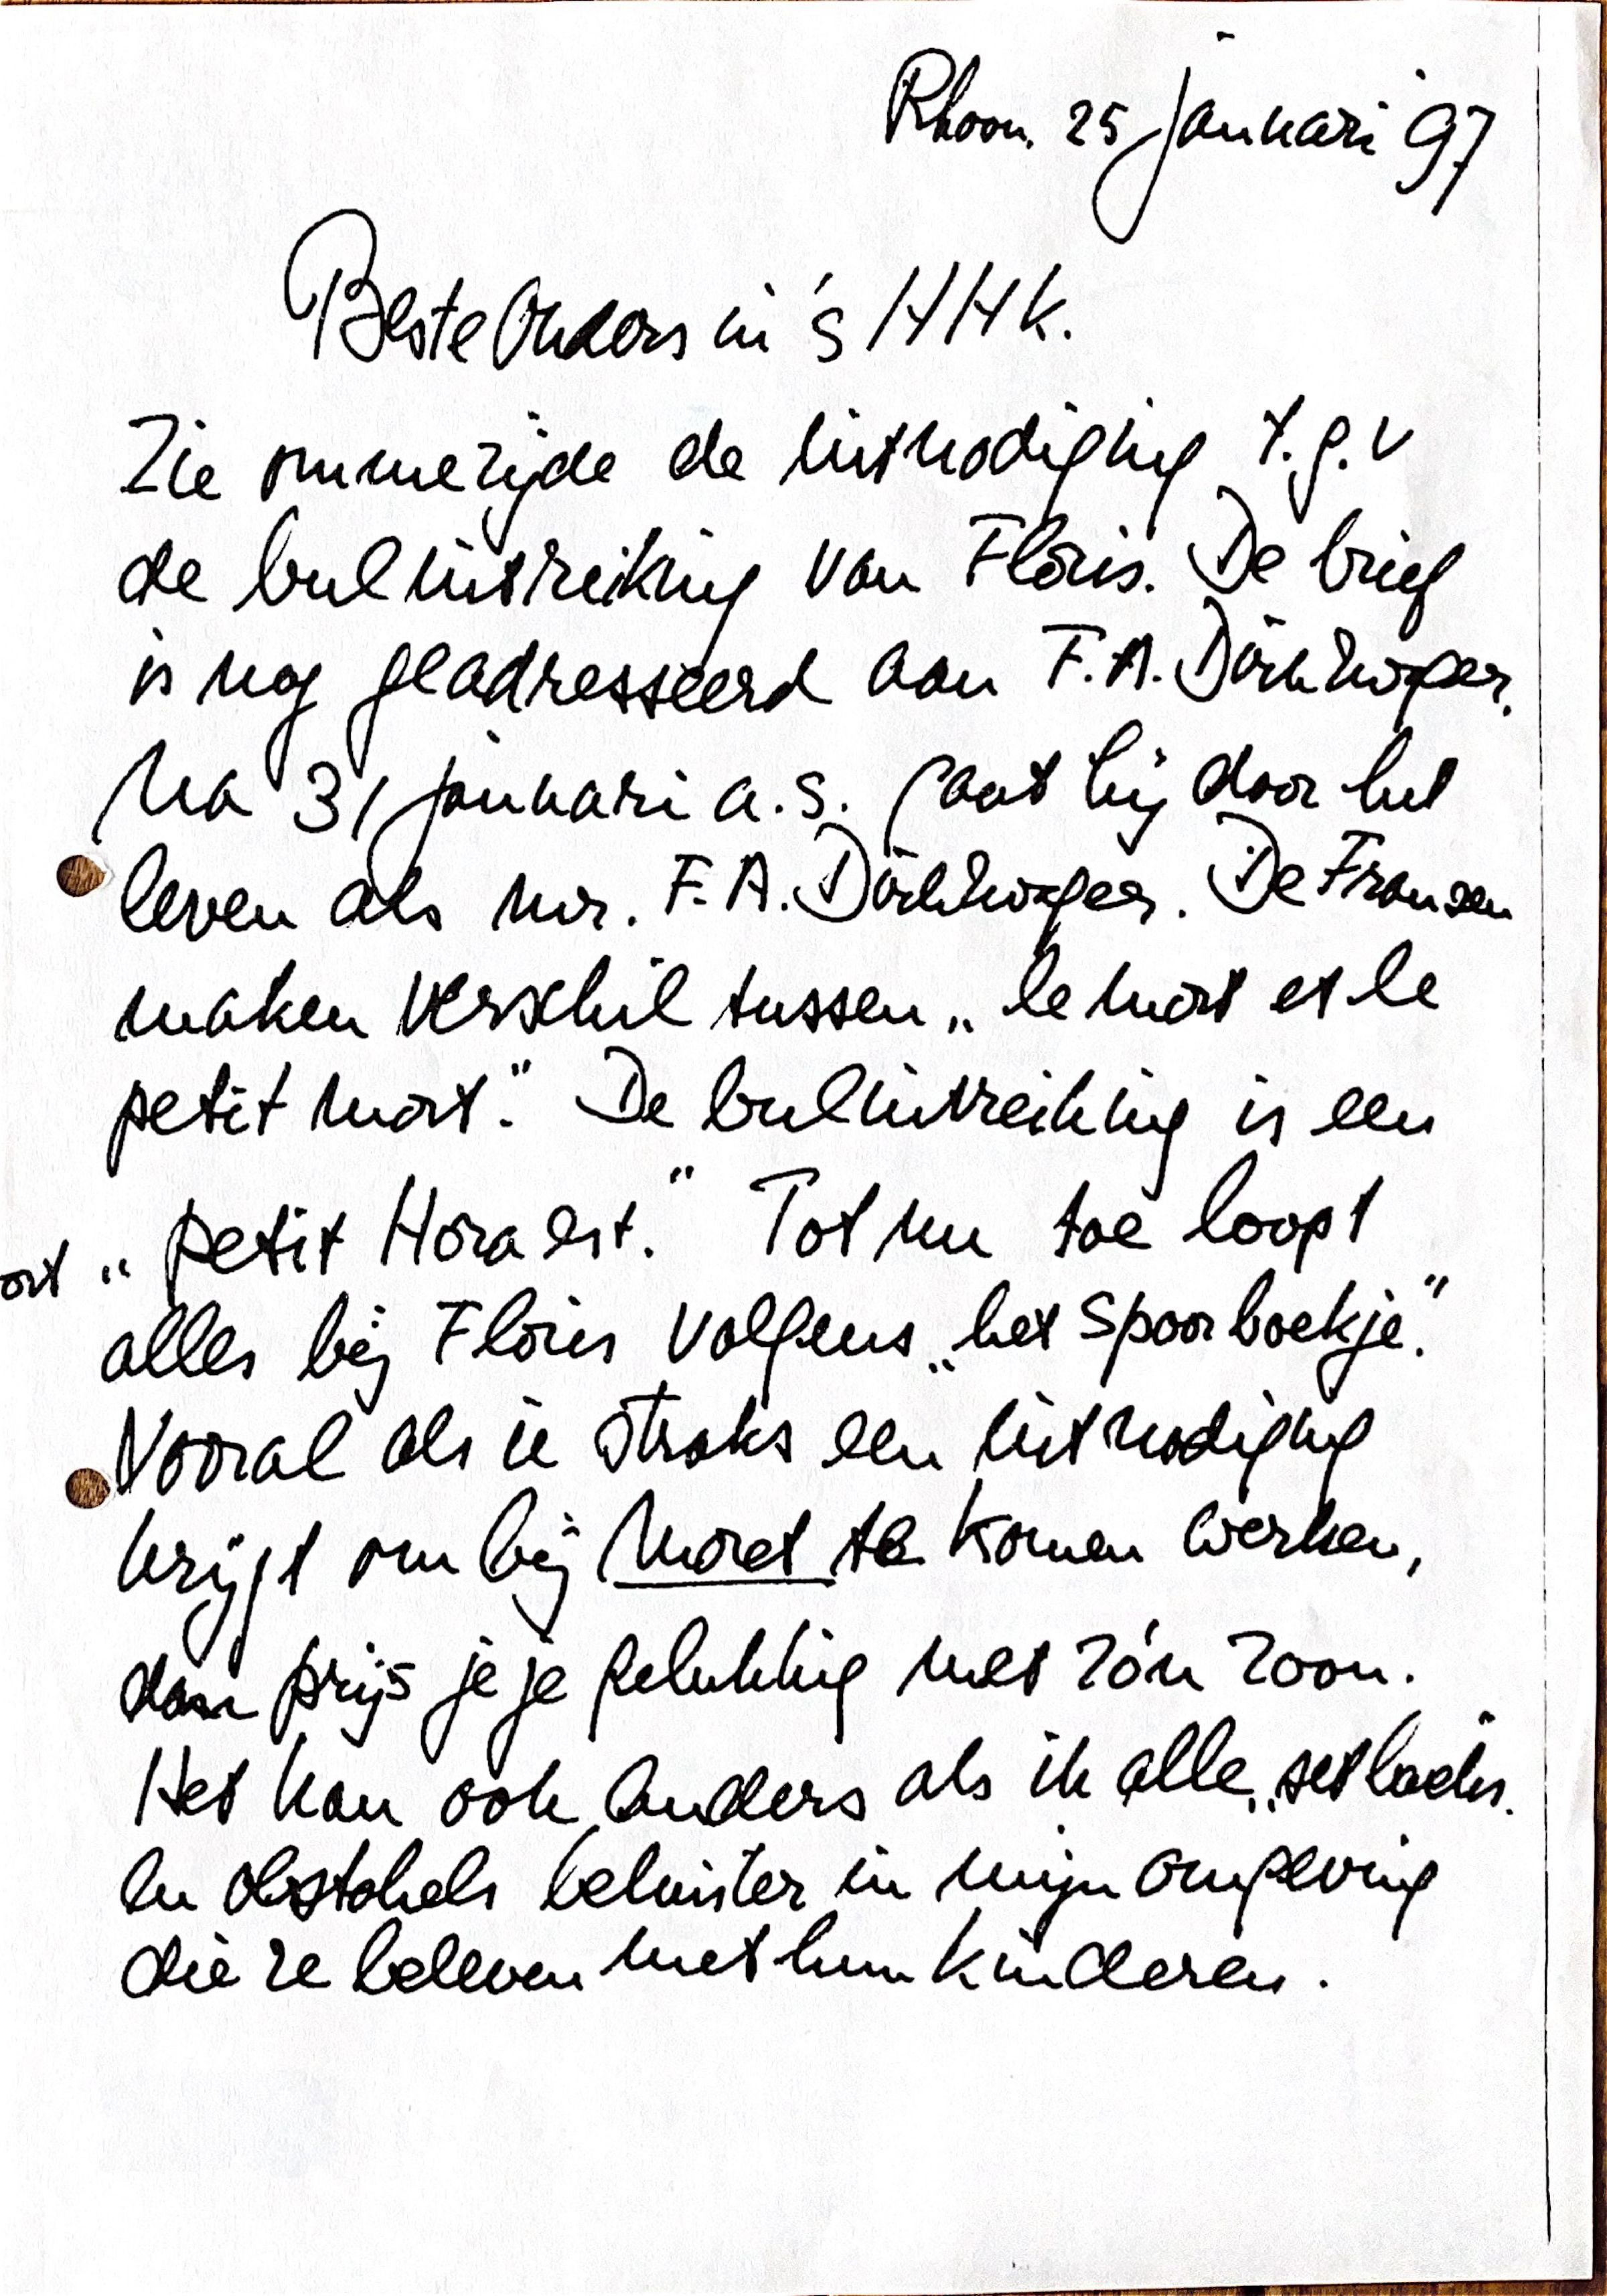 Rhoon. 25 januari '97
Beste Ouders in 's HHK.
Zie ommezijde de uitnodiging t.g.v
de buluitreiking van Floris. De brief
is nog geadresseerd aan F.A.
Na 31 januari a.s. gaat hij door het
leven als mr. F.A. De Fransen
maken verschil tussen „le mort et le
petit mort." De buluitreiking is een
„petit Hora est." Tot nu toe loopt
alles bij Floris volgens „het spoorboekje."
Vooral als ie straks een uitnodiging
krijgt om bij Moret te komen werken,
dan prijs je je gelukkig met zó'n zoon.
Het kan ook anders als ik alle „setbacks"
en obstakels beluister in mijn omgeving
die ze beleven met hun kinderen.